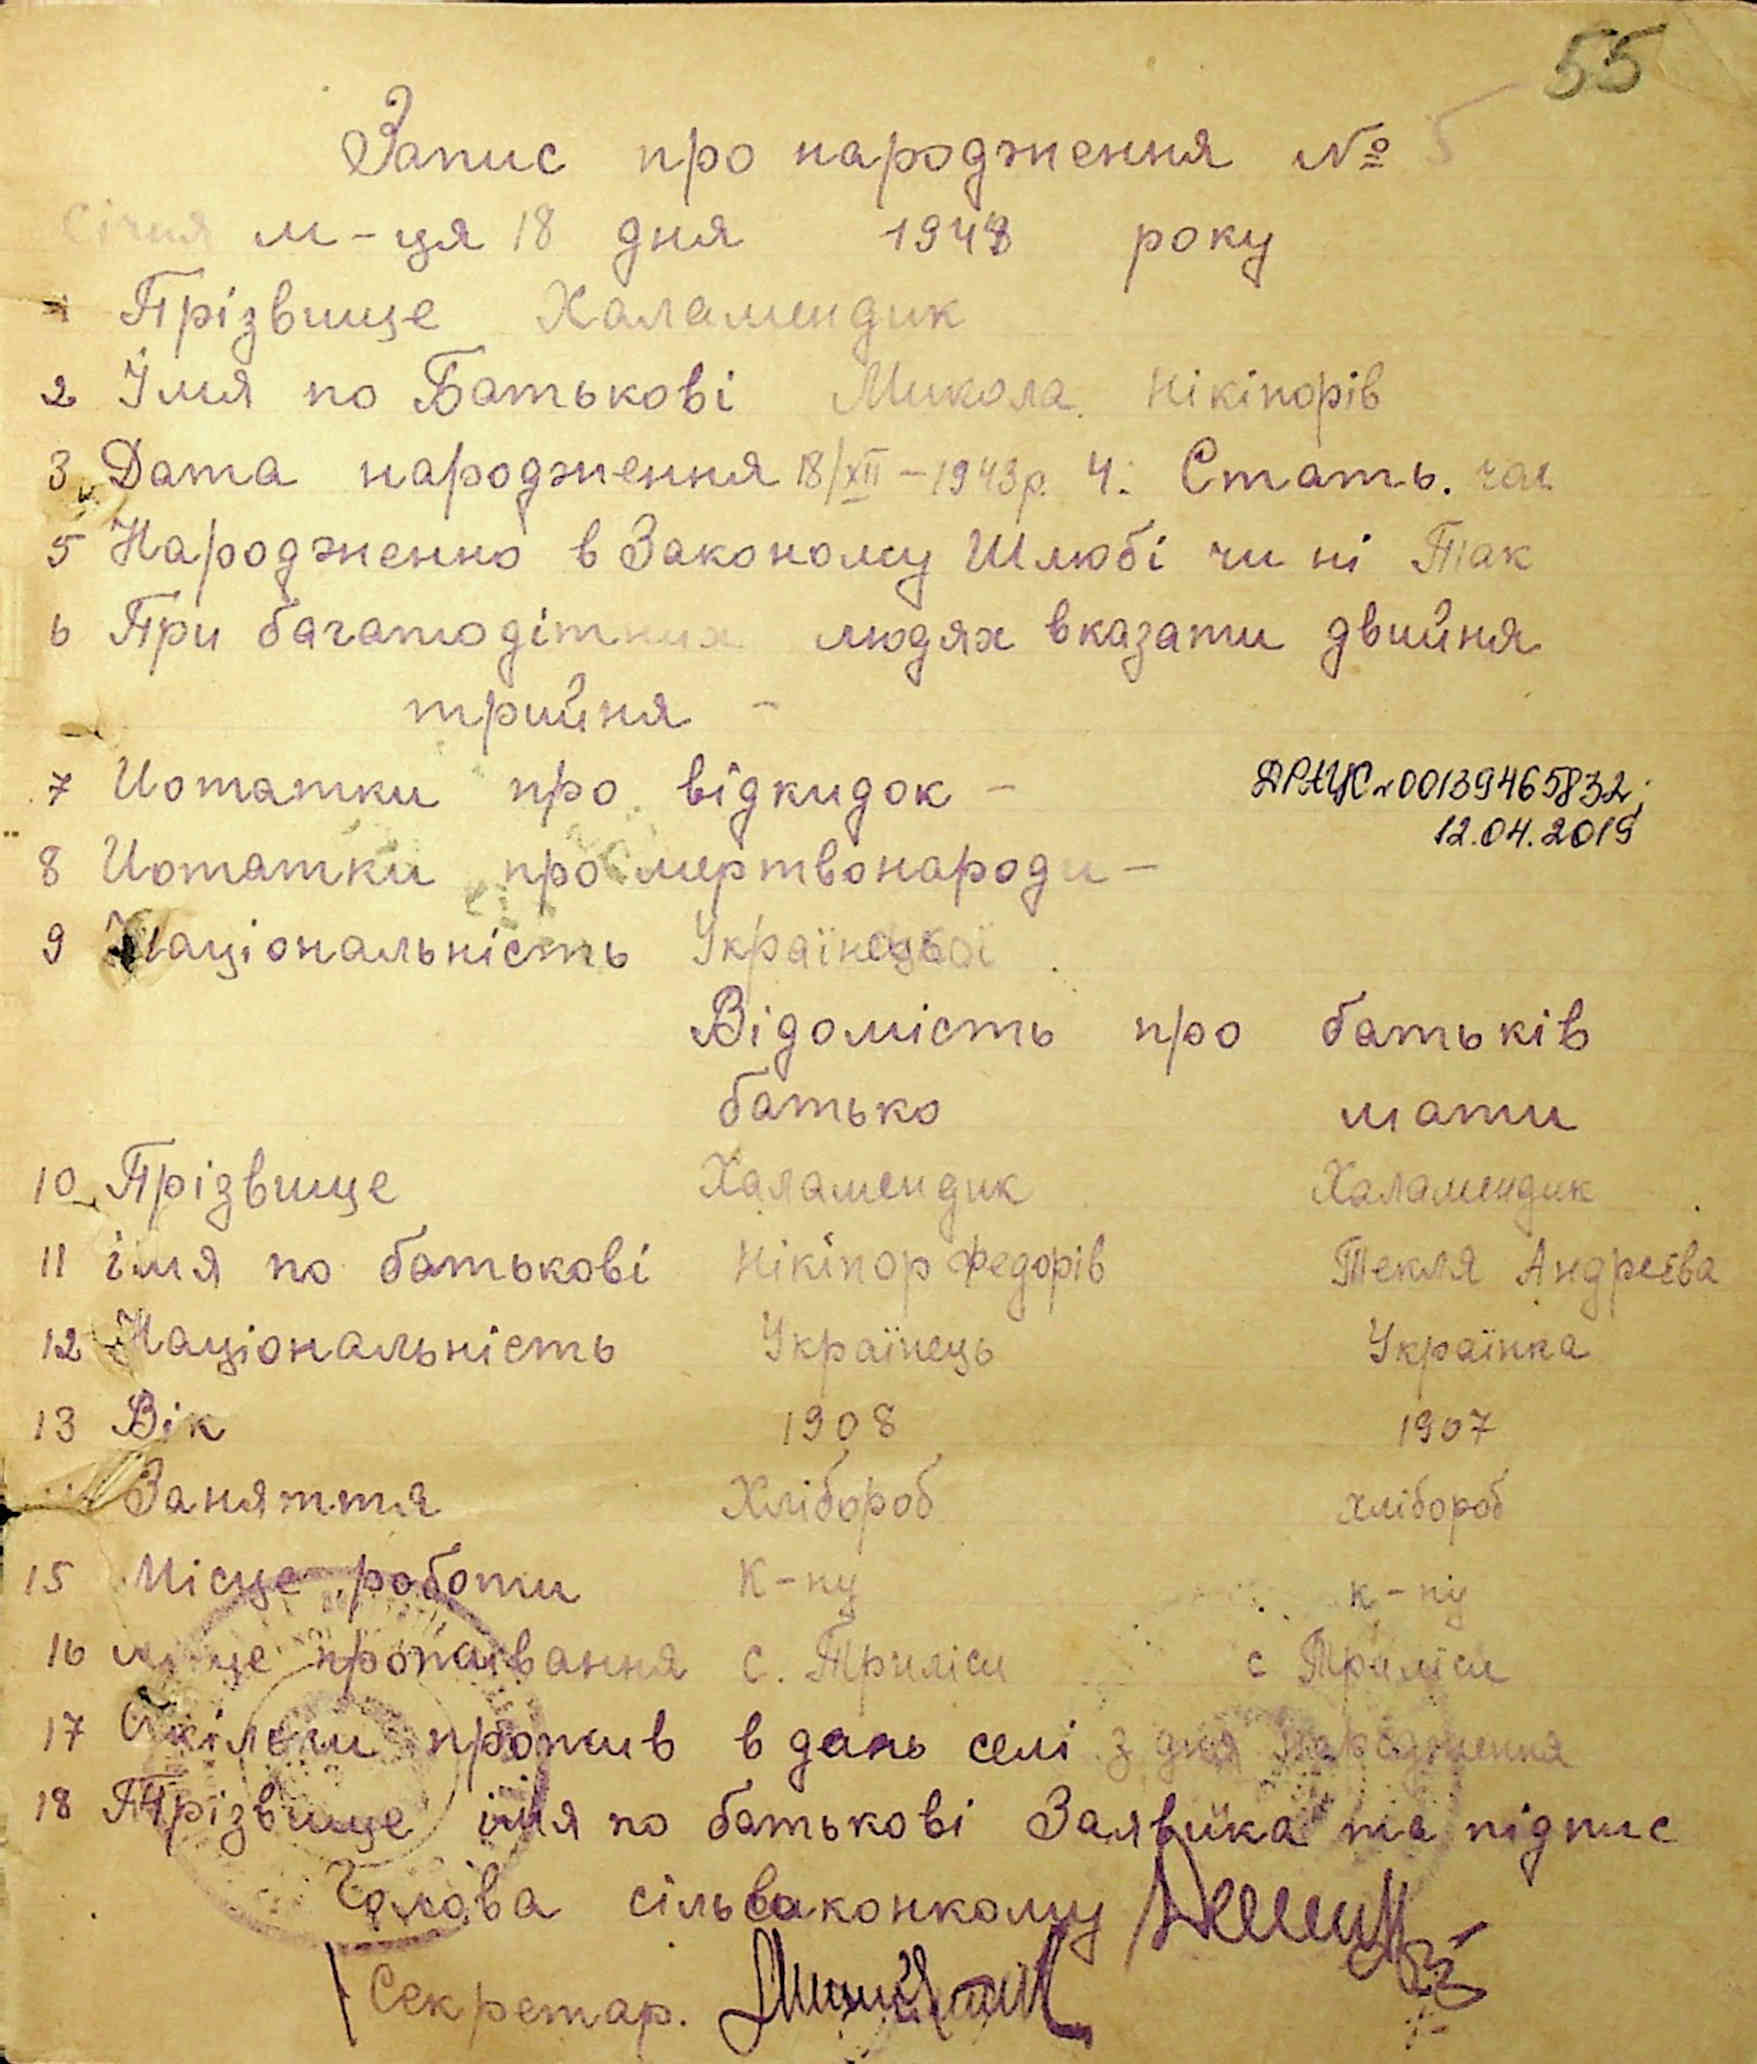 55
Запис про народження № 5
Січня м-ця 18 дня 1943 року
1 Прізвище Халамендик
2 Імя по Батькові Микола Нікіпорів
3 Дата народження 18/XII-1943р. 4. Стать. чол
5 Народженно в Законому Шлюбі чи ні Так
6 При багатодітних людях вказати двийня
трийня -
7 Нотатки про відкидок -
ДРАЦС 00139465832;
12.04.2019
8 Нотатки про мертвонароди -
9 Національність Української
Відомість про батьків
батько мати
10 Прізвище Халамендик Халамендик
11 імя по батькові Нікіпор Федорів Текля Андреєва
12 Національність Українець Українка
13 Вік 1908 1907
Заняття Хлібороб хлібороб
15 Місце роботи К-пу к-пу
16 місце проживання с. Триліси с Триліси
17 Скільки прожив в дань селі з дня народження
18 Прізвище імя по батькові Заявика та підпис
Голова сільваконкому
Секретар.